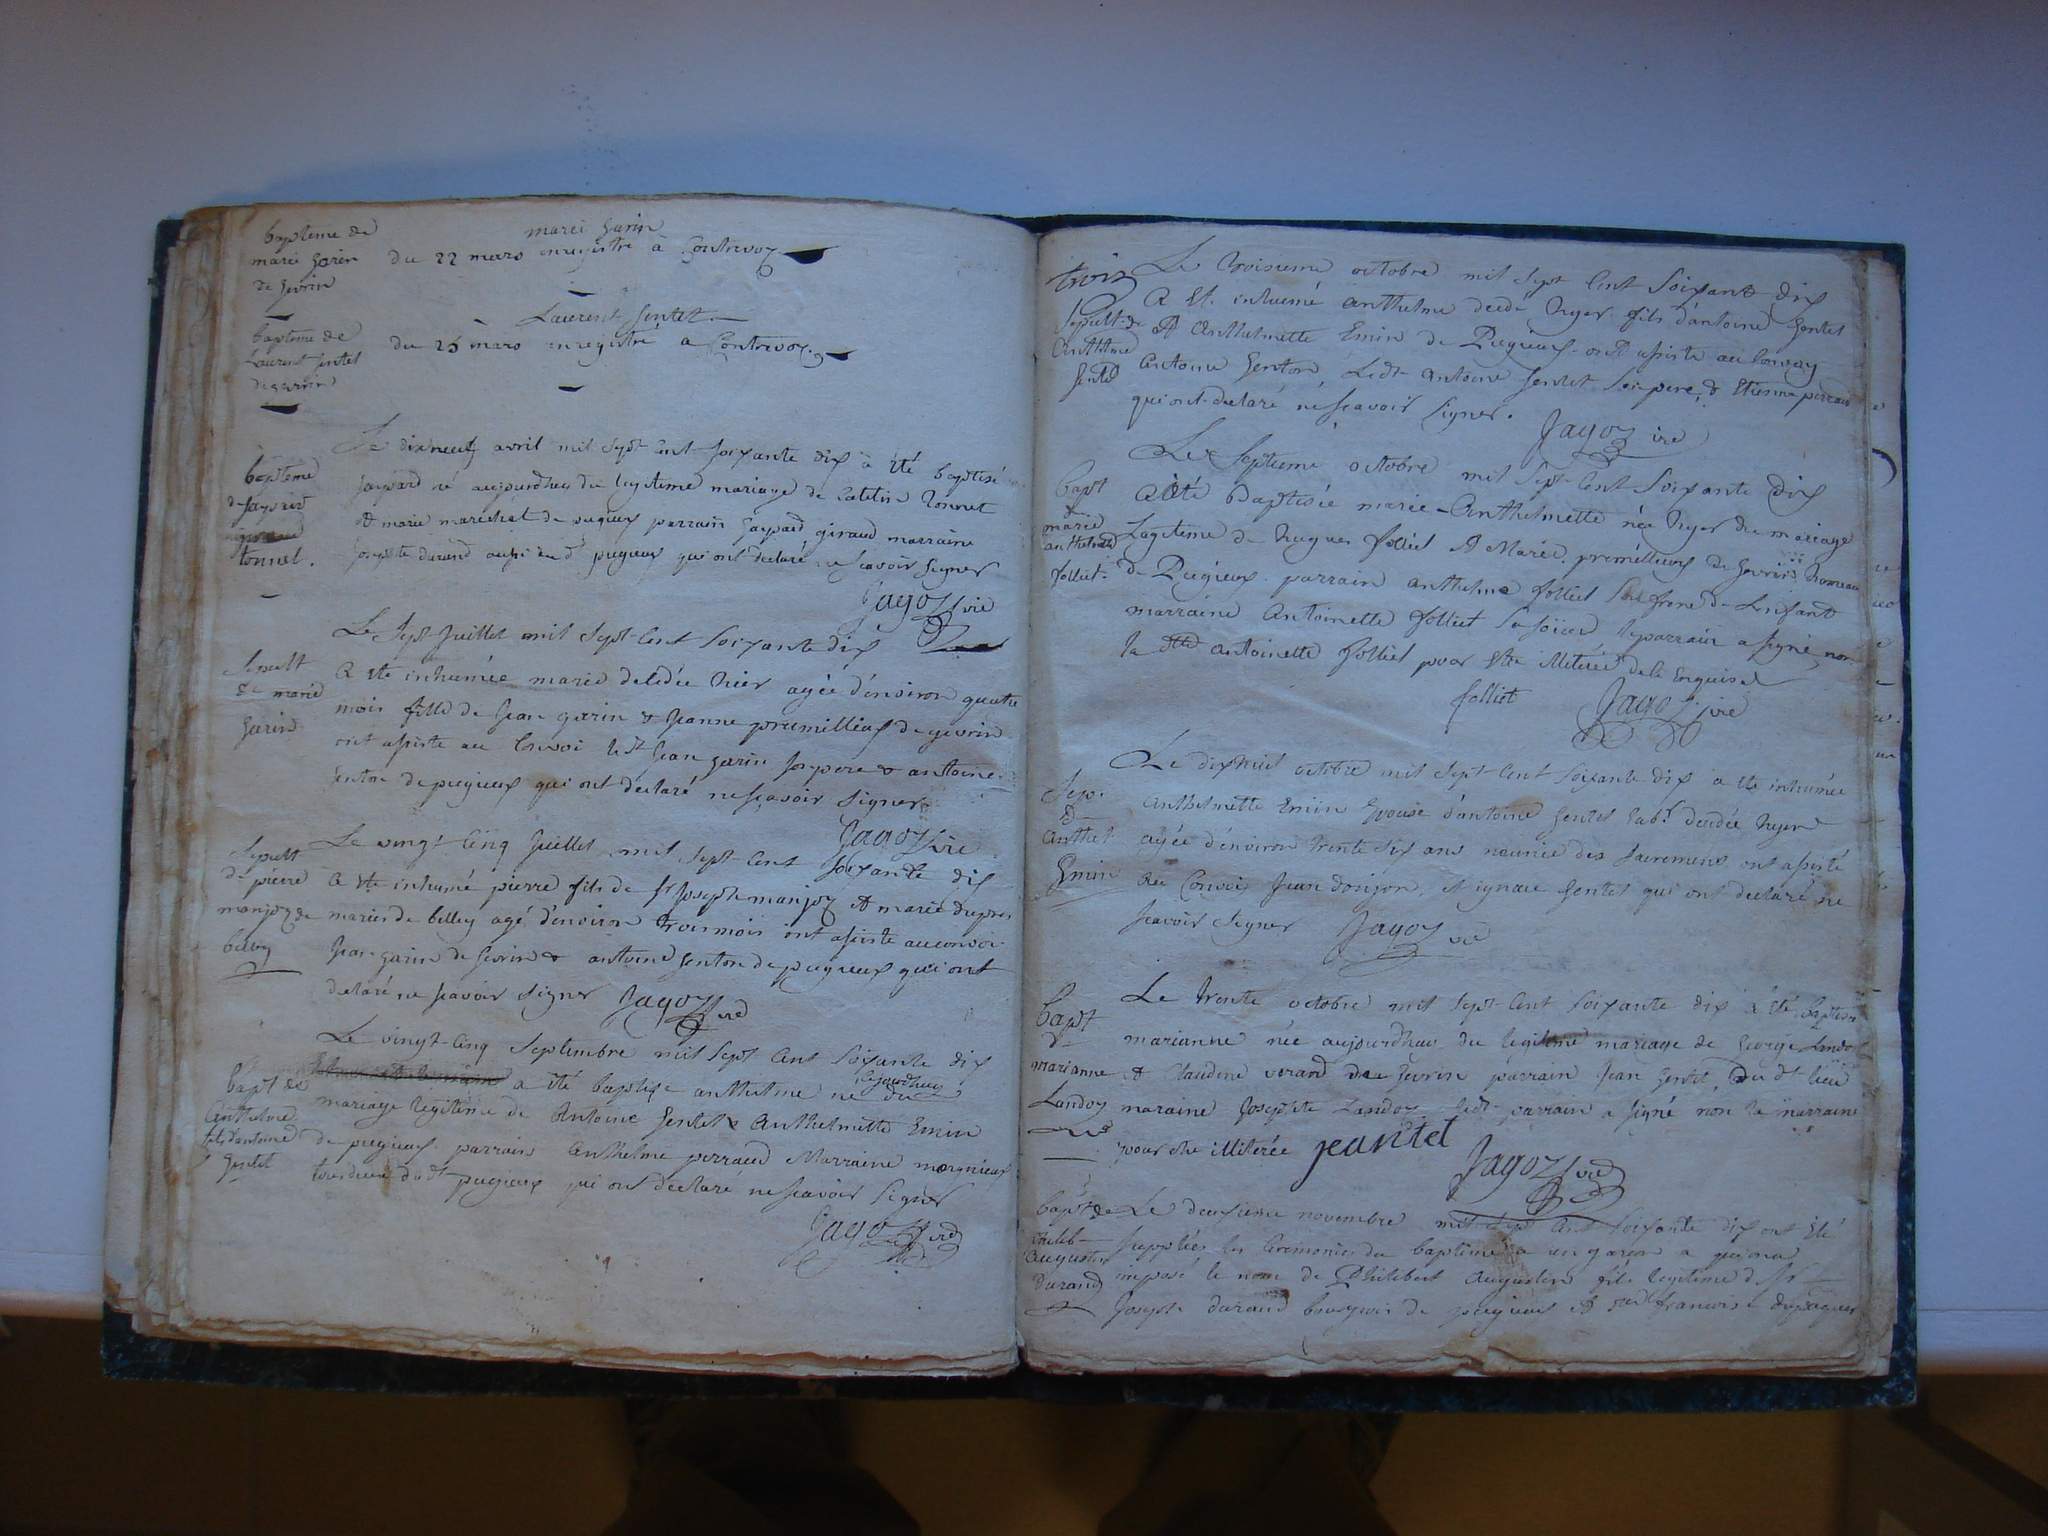 bapteme de
marei garin
de gevrin
marei garin
du 22 mars enregistré a Contrevoz
bapteme de
Laurent gentet
de gevrin
Laurent gentet
du 25 mars enregistré a Contrevoz
bapteme
de gaspard
tonnet.
Le dixneuf avril mil sept cent soixante dix a été baptisé
gaspard né aujourdhuy du legiteme mariage de Catelin Tonnet
et marie marechal de pugieux parrain gaspard giraud marraine
josephte durand aussi du dt pugieux qui ont declaré ne scavoir signer
Jagoz vic
Sepult
de marie
garin
Le Sept Juillet mil Sept Cent Soixante dix
a ete inhumée marie decedée hier agée d'environ quatre
mois fille de Jean garin & Jeanne premillieux de gevrin
ont assiste au Convoi le dt Jean garin son pere & antoine
genton de pugieux qui ont déclaré ne scavoir signer
Jagoz vic
Sepult
de pierre
manjoz de
belley
Le vingt Cinq Juillet mil Sept Cent soixante dix
a ete inhumé pierre fils de Sr Joseph manjoz et marie
mariés de belley agé d'environ trois mois ont assiste au convoi
Jean garin de gevrin & antoine genton de pugieux qui ont
declaré ne scavoir signer Jagoz vic
bapt de
Anthelme
fils d'antoine
gentet
Le vingt-Cinq Septembre mil Sept Cent Soixante dix
a été baptisé anthelme né aujourdhuy du
mariage legiteme de Antoine gentet & Anthelmette Emin
de pugieux parrain Anthelme perraud Marraine
du dt pugieux qui ont declaré ne scavoir signer
Jagoz vic
trois
Sepult de
Anthelme
gentet
Le troisieme octobre mil Sept Cent Soixante dix
a Et. inhumé anthelme decedé hyer fils d'antoine gentet
et anthelmette Emin de Pugieux ont assiste au Convoy
antoine genton, Ledt antoine gentet Son pere, & Etienne perraud
qui ont declaré ne scavoir signer.
Jagoz vic
Bapt
de
marie
anthelmette
folliet
Le Septieme octobre mil Sept Cent Soixante Dix
a été baptisée marie-Anthelmette née hyer du mariage
Legiteme de hugues folliet et Marie premillieux de gevrin hameau
de Pugieux. parrain anthelme folliet Son frere de L'enfant
marraine antoinette folliet sa soeur, le parrain a signé, non
la dtte antoinette folliet pour Etre illiterée de ce Enquise
folliet Jagoz vic
Sep.
de
Anthel.
Emin
Le dixhuit octobre mil Sept Cent Soixante dix a ete inhumée
Anthelmette Emin Epouse d'antoine gentet labr. decedée hyer
agée d'environ trente six ans munie des Sacremens ont assisté
au Convoi Jean donjon, et ignace gentet qui ont declaré ne
scavoir signer Jagoz vic
bapt
de
marianne
Landoz
Le trente octobre mil Sept Cent Soixante dix a été baptisée
marianne née aujourdhuy du legiteme mariage de george Landoz
et Claudine verand de gevrin parrain Jean gentet, du dt lieu
maraine Josephte Landoz ledt parrain a signé non la marraine
pour etre illiterée jeantet
Jagoz vic
bapt de
philib-
Augustin
durand
Le deuxieme novembre mil Sept Cent Soixante dix ont été
supplées les Ceremonies du bapteme a un garcon a qui on a
imposé le nom de Philibert Augustin fils legiteme de Sr
Joseph durand bourgeois de pugieux et